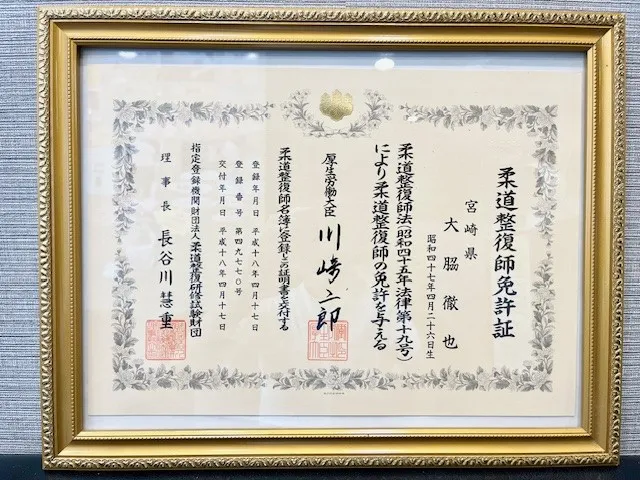 柔道整復師免許証
宮崎県
大脇徹也
昭和四十七年四月二十六日生
柔道整復師法(昭和四十五年法律第十九号)
により柔道整復師の免許を与える
厚生労働大臣 川崎二郎
柔道整復師名簿に登録しこの証明書を交付する
登録年月日 平成十八年四月十七日
登録番号 第四九七七〇号
交付年月日 平成十八年四月十七日
指定登録機関財団法人柔道整復研修試験財団
理事長 長谷川慧重